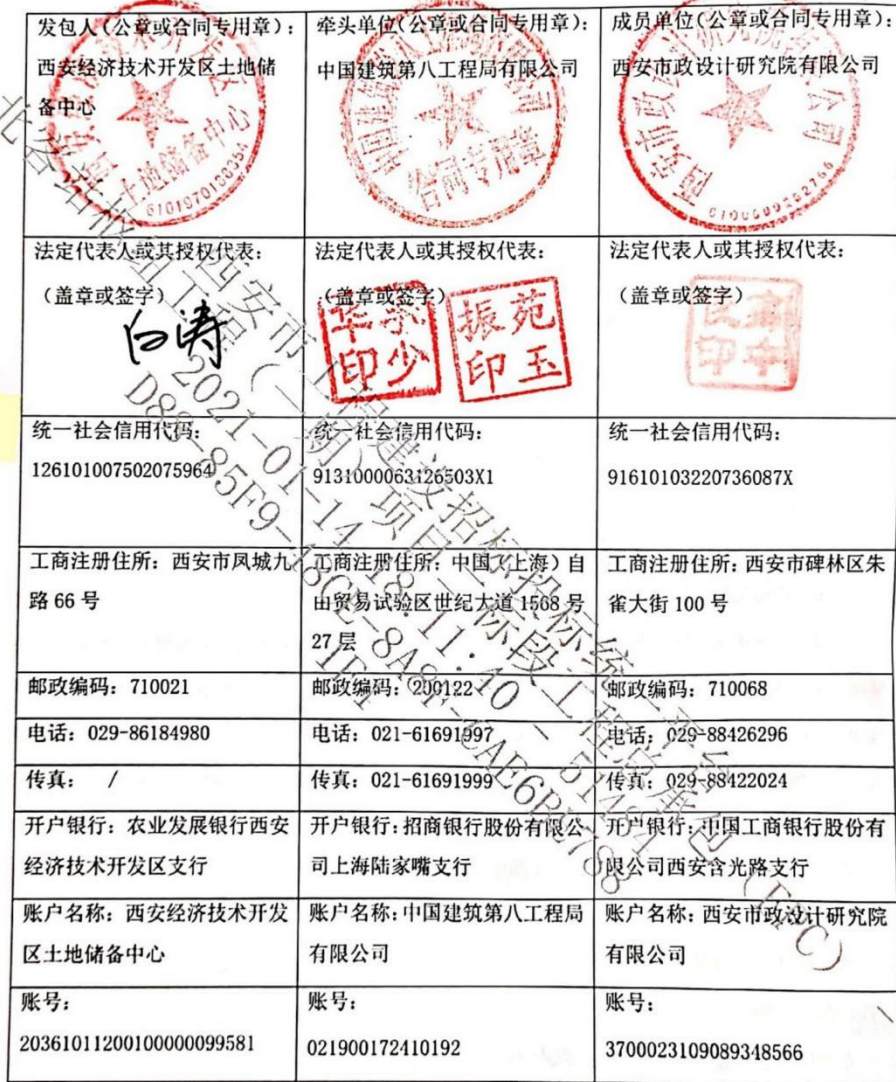 发包人（公章或合同专用章）：
西安经济技术开发区土地储
备中心
牵头单位（公章或合同专用章）：
中国建筑第八工程局有限公司
成员单位（公章或合同专用章）：
西安市政设计研究院有限公司
土地储备中心
合同专用章
法定代表人或其授权代表：
（盖章或签字）
白涛
法定代表人或其授权代表：
（盖章或签字）
振苑
印玉
法定代表人或其授权代表：
（盖章或签字）
统一社会信用代码：
126101007502075964
统一社会信用代码：
9131000063126503X1
统一社会信用代码：
91610103220736087X
工商注册住所：西安市凤城九
路 66 号
工商注册住所：中国（上海）自
由贸易试验区世纪大道 1568 号
27 层
工商注册住所：西安市碑林区朱
雀大街 100 号
邮政编码：710021
邮政编码：200122
邮政编码：710068
电话：029-86184980
电话：021-61691997
电话：029-88426296
传真： /
传真：021-61691999
传真：029-88422024
开户银行：农业发展银行西安
经济技术开发区支行
开户银行：招商银行股份有限公
司上海陆家嘴支行
开户银行：中国工商银行股份有
限公司西安含光路支行
账户名称：西安经济技术开发
区土地储备中心
账户名称：中国建筑第八工程局
有限公司
账户名称：西安市政设计研究院
有限公司
账号：
20361011200100000099581
账号：
021900172410192
账号：
3700023109089348566
西安市工程建设招标投标统一平台